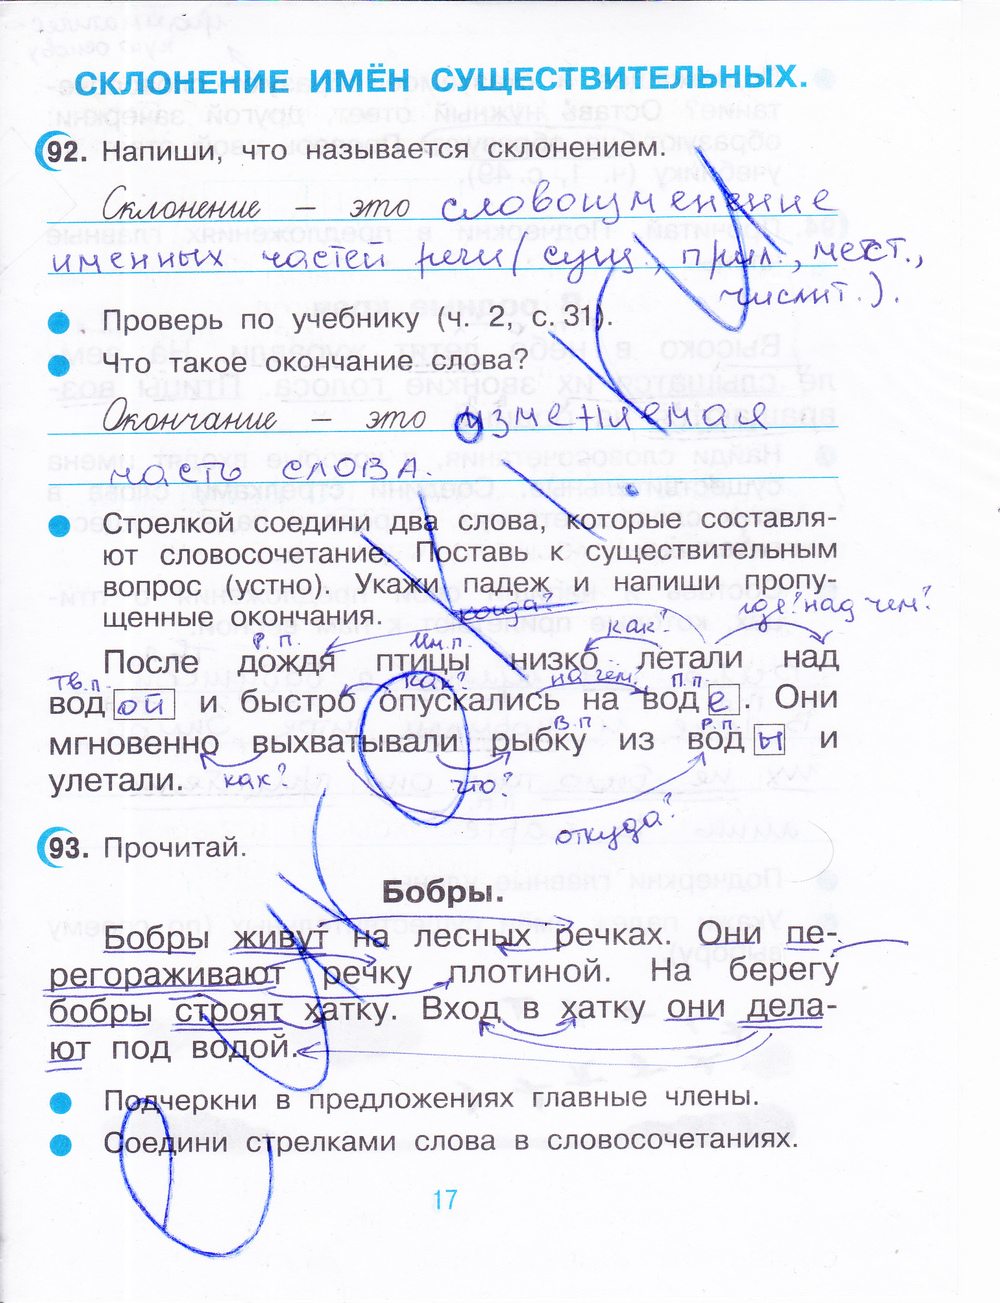 СКЛОНЕНИЕ ИМЁН СУЩЕСТВИТЕЛЬНЫХ.
92. Напиши, что называется склонением.
Склонение – это словоизменение
именных частей речи (сущ., прил., мест.,
числит.).
Проверь по учебнику (ч. 2, с. 31).
Что такое окончание слова?
Окончание – это изменяемая
часть слова.
Стрелкой соедини два слова, которые составля-
ют словосочетание. Поставь к существительным
вопрос (устно). Укажи падеж и напиши пропу-
щенные окончания.
когда? как? где? над чем?
Р.п. Им.п.
После дождя птицы низко летали над
Тв.п. как? на чем? П.п.
вод ой и быстро опускались на вод е . Они
В.п. Р.п.
мгновенно выхватывали рыбку из вод ы и
улетали. как? что?
откуда?
93. Прочитай.
Бобры.
Бобры живут на лесных речках. Они пе-
регораживают речку плотиной. На берегу
бобры строят хатку. Вход в хатку они дела-
ют под водой.
Подчеркни в предложениях главные члены.
Соедини стрелками слова в словосочетаниях.
17